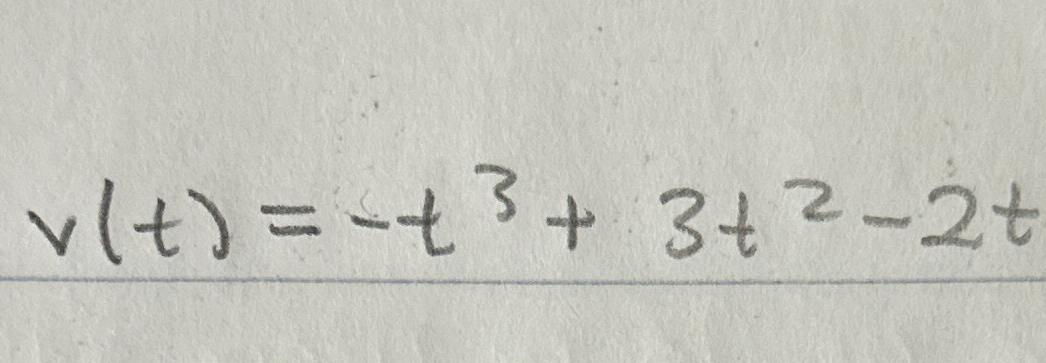 v(t) = -t³ + 3t² - 2t